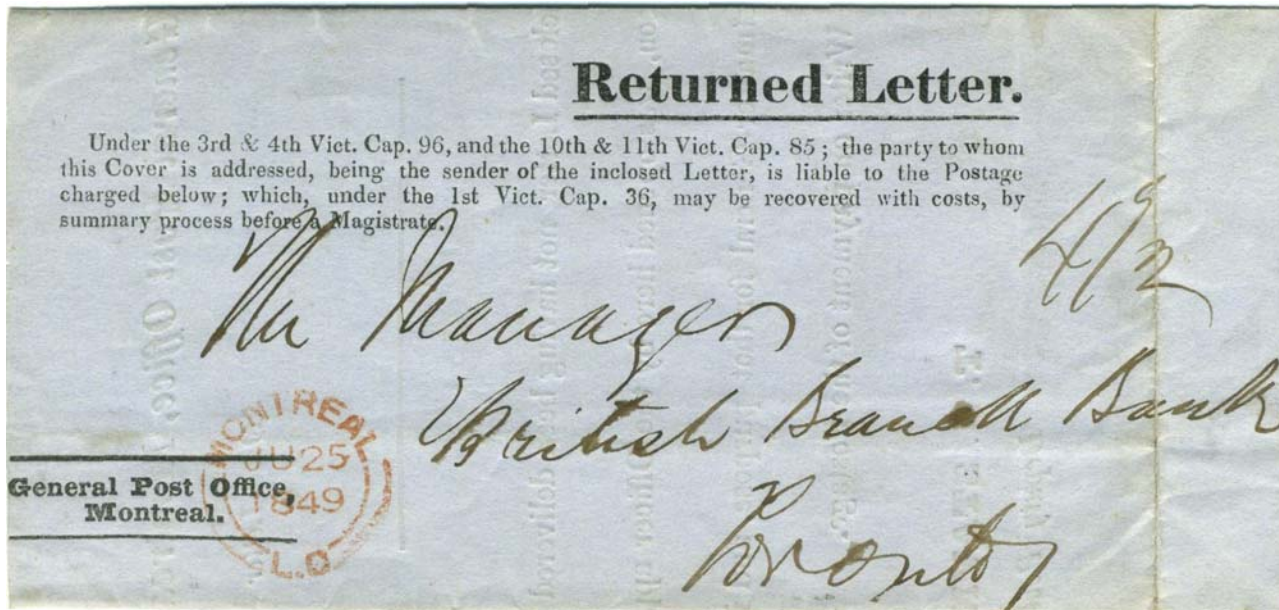 Returned Letter.
Under the 3rd & 4th Vict. Cap. 96, and the 10th & 11th Vict. Cap. 85; the party to whom
this Cover is addressed, being the sender of the inclosed Letter, is liable to the Postage
charged below; which, under the 1st Vict. Cap. 36, may be recovered with costs, by
summary process before a Magistrate.
The Manager
British Branch Bank
Toronto
MONTREAL
JU 25
1849
L.C
General Post Office,
Montreal.